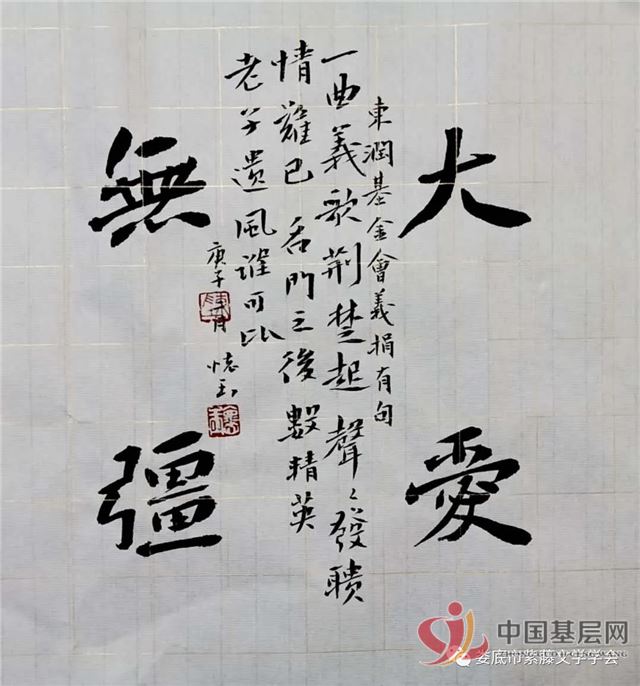 大愛
無彊
東潤基金會義捐有句
一曲義歌荆楚起聲〻發聵
情難已名門之後數精英
老子遺風誰可比
庚子
中国基层网
娄底市紫藤文学学会